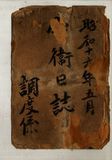 昭和十六年五月
衛日誌
調度係